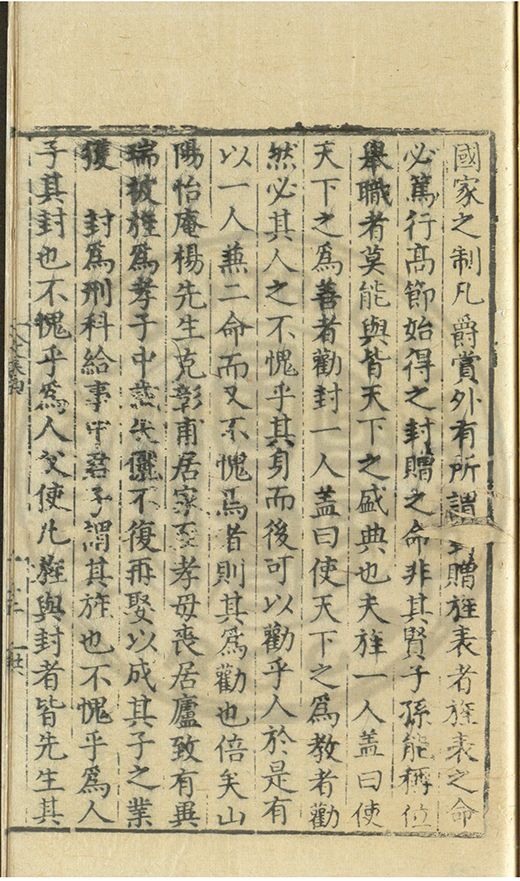 國家之制凡爵賞外有所謂贈旌表者旌表之命
必篤行高節始得之封贈之命非其賢子孫能稱位
舉職者莫能與皆天下之盛典也夫旌一人蓋曰使
天下之為善者勸封一人蓋曰使天下之為教者勸
然必其人之不愧乎其身而後可以勸乎人於是有
以一人兼二命而又不愧焉者則其為勸也倍矣山
陽怡庵楊先生克彰甫居家至孝母喪居廬致有異
瑞被旌為孝子中歲失儷不復再娶以成其子之業
獲 封為刑科給事中君子謂其旌也不愧乎為人
子其封也不愧乎為人父使凡旌與封者皆先生其